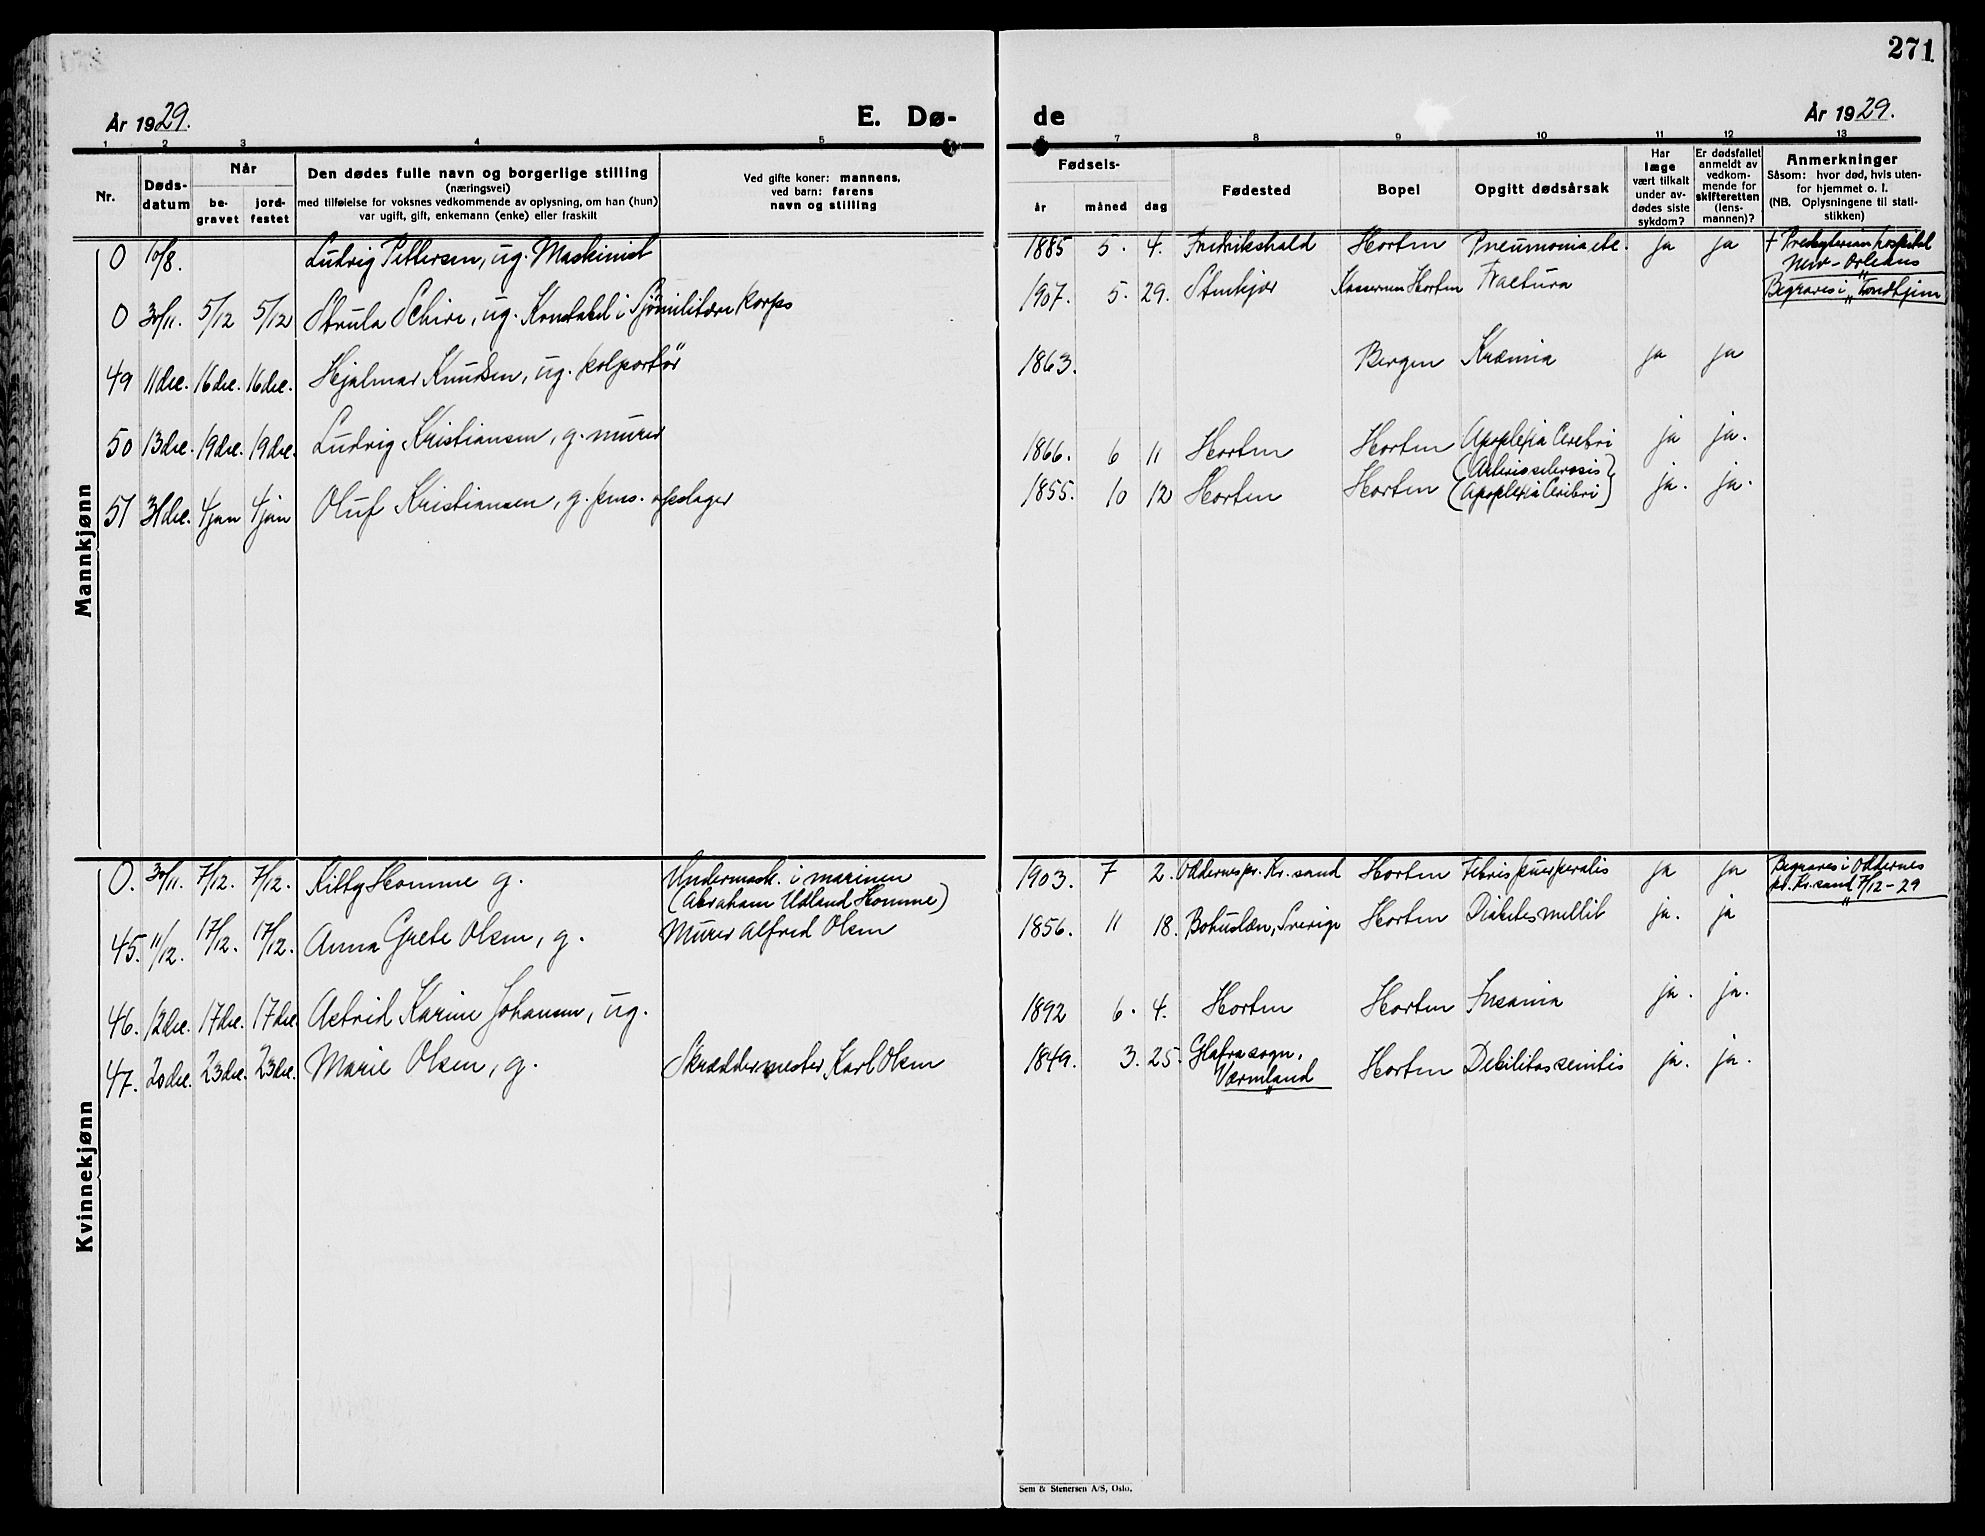 271
År 1929.
E. Dø-
de
År 1929.
1 2 3 4 5
6 7 8 9 10 11 12 13
Nr.
Døds-
datum
Når
be-
gravet
jord-
festet
Den dødes fulle navn og borgerlige stilling
(næringsvei)
med tilføielse for voksnes vedkommende av oplysning, om han (hun)
var ugift, gift, enkemann (enke) eller fraskilt
Ved gifte koner: mannens,
ved barn: farens
navn og stilling
Fødsels-
år måned dag
Fødested
Bopel
Opgitt dødsårsak
Har
læge
vært tilkalt
under av-
dødes siste
sykdom?
Er dødsfallet
anmeldt av
vedkom-
mende for
skifteretten
(lens-
mannen)?
Anmerkninger
Såsom: hvor død, hvis uten-
for hjemmet o. l.
(NB. Oplysningene til stati-
stikken)
Mannkjønn
0 10/8. Ludvig Pettersen, ug. Maskinist 1885 5. 4. Fredrikshald Horten Pneumonia etc. ja ja † Presbyterian hospital
New-Orleans
0 30/11. 5/12 5/12 Schire, ug. Konstabel i Sjømilitære korps 1907. 5. 29. Stenkjær Kasernen Horten Fractura Begraves i Trondhjem
49 11 dec. 16 dec. 16 dec. Hjalmar Knudsen, ug. kolportør 1863. Bergen ja ja
50 13 dec. 19 dec. 19 dec. Ludvig Kristiansen, g. murer 1866. 6 11 Horten Horten Apoplexia Cerebri ja ja.
51 31 dec. 4 jan 4 jan Oluf Kristiansen, g. pens. opslager 1855. 10 12 Horten Horten (Arteriosclerosis)
(Apoplexia Cerebri) ja. ja.
Kvinnekjønn
0. 30/11. 7/12. 7/12. Kitty Homme g. Undermask. i marinen
(Abraham Udland Homme) 1903. 7 2. Oddernes pr. Kr.sand Horten Febris puerperalis ja ja Begraves i Oddernes
pr. Kr.sand 7/12-29
45. 11/12. 17/12. 17/12. Anna Grete Olsen, g. Murer Alfred Olsen 1856. 11 18. Bohuslæn, Sverige Horten Diabetes mellit ja. ja
46. 12 dec. 17 dec. 17 dec. Astrid Karine Johansen, ug. 1892 6. 4. Horten Horten Insania ja. ja.
47. 20 dec. 23 dec. 23 dec. Marie Olsen, g. Skræddermester Karl Olsen 1849. 3. 25. Glafra sogn,
Värmland Horten Debilitas senilis ja. ja.
Sem & Stenersen A/S, Oslo.